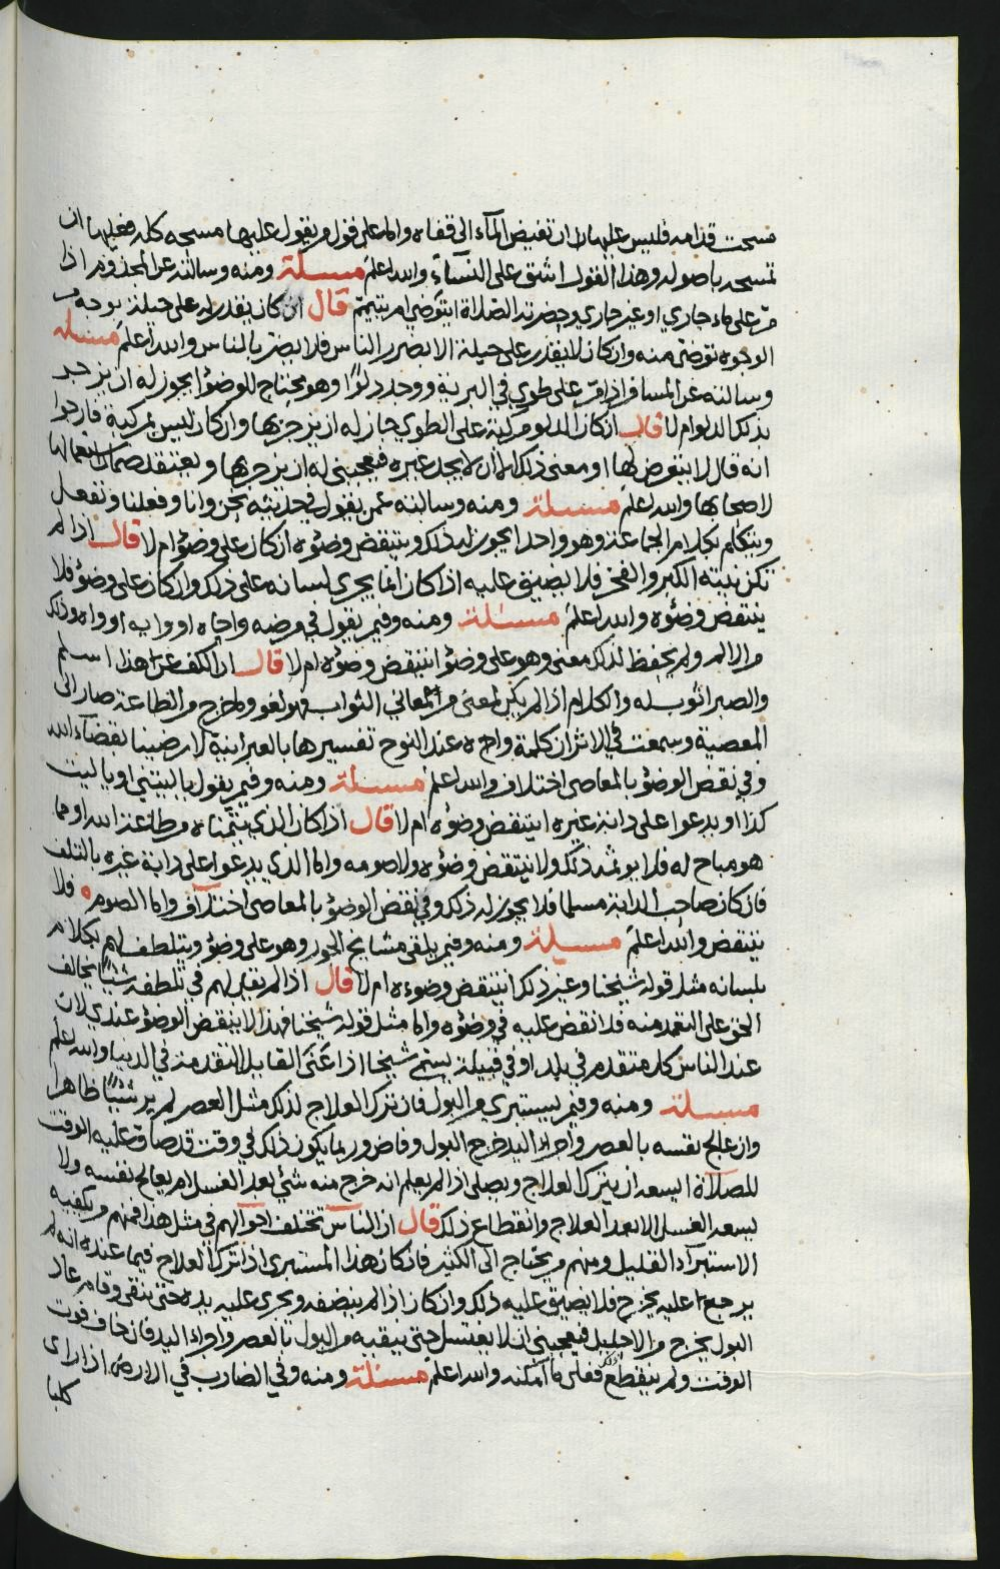 مسحت قدامه فليس عليها ان تفيض الماء الى قفاه واما على قول من يقول عليها مسحه كله فعليها ان
تمسحه باصوله وهذا القول اشق على النساء والله اعلم مسئلة ومنه وسالته عن المجذوم اذا
مر على ماء جاري او غير جاري وحضرته الصلاة ايتوضى ام يتيمم قال ان كان يقدر له على حيلة بوجه من
الوجوه توضى منه وان كان لا يقدر على حيلة الا بضرر الناس فلا يضر بالناس والله اعلم مسئلة
وسالته عن المسافر اذا مر على طوي في البرية ووجد دلوا وهو محتاج للوضؤ ايجوز له ان يزجر
بذلك الدلو ام لا قال ان كان الدلو مركبة على الطوي جاز له ان يزجر بها وان كان ليس بمركبة فارجوا
انه قال لا يتعرض لها او معنى ذلك الا ان لا يجد غيره فيعجبني له ان يزجر بها ويعتقد ضمان استعمالها
لاصحابها والله اعلم مسئلة ومنه وسالته عمن يقول في حديثه نحن وانا وفعلنا ونفعل
ويتكلم بكلام الجماعة وهو واحد ايجوز له ذلك وينتقض وضؤه ان كان على وضؤ ام لا قال اذا لم
تكن نيته الكبر والفخر فلا يضيق عليه اذا كان انما يجري لسانه على ذلك وان كان على وضؤ فلا
ينتقض وضؤه والله اعلم مسئلة ومنه وفيمن يقول في مرضه واخاه او وابيه او واه وذلك
من الالم ولم يحفظ لذلك معنى وهو على وضؤ اينتقض وضؤه ام لا قال ان الكف عن هذا اسلم
والصبر اثوب له والكلام اذا لم يكن لمعنى من المعاني الثواب فهو لغو وما خرج من الطاعة صار الى
المعصية وسمعت في الاثر ان كلمة واح ه عند النوح تفسيرها بالعبرانية لا رضينا بقضاء الله
وفي نقض الوضؤ بالمعاصي اختلاف والله اعلم مسئلة ومنه وفيمن يقول يا ليتني او يا ليت
كذا او يدعوا على دابة غيره اينتقض وضؤه ام لا قال اذا كان الذي يتمناه من طاعة الله او مما
هو مباح له فلا يوثمه ذلك ولا ينتقض وضؤه ولا صومه واما الذي يدعوا على دابة غيره بالتلف
فان كان صاحب الدابة مسلما فلا يجوز له ذلك وفي نقض الوضؤ بالمعاصي اختلاف واما الصوم فلا
ينتقض والله اعلم مسئلة ومنه وفيمن يلقى مشايخ الجور وهو على وضؤ ويتلطف لهم بكلام
بلسانه مثل قوله شيخنا وغير ذلك اينتقض وضوءه ام لا قال اذا لم تقبل لهم في تلطفه شيئا يخالف
الحق على التعمد منه فلا نقض عليه في وضؤه واما مثل قوله شيخنا فهذا لا ينقض الوضؤ عندي لان
عند الناس كل متقدم في بلد او في قبيلة يسمى شيخا اذا عنى القايل التقدمة في الدنيا والله اعلم
مسئلة ومنه وفيمن يستبري من البول فان ترك العلاج لذلك مثل العصر لم ير شيئا ظاهرا
وان عالج نفسه بالعصر واجراء اليد خرج البول وفاض وربما يكون ذلك في وقت قد ضاق عليه الوقت
للصلاة ايسعه ان يترك العلاج ويصلي اذا لم يعلم انه خرج منه شئ بعد الغسل ام يعالج نفسه ولا
يسعه الغسل الا بعد العلاج وانقطاع ذلك قال ان الناس تختلف احوالهم في مثل هذا فمنهم من يكفيه
الاستبراء القليل ومنهم من يحتاج الى الكثير فان كان هذا المستبري اذا ترك العلاج فيما عنده انه لم
يرجع عليه يخرج فلا يضيق عليه ذلك وان كان اذا لم ينضفه ويجري عليه يده حتى ينقى وقام عاد
البول يخرج من الاحليل فيعجبني ان لا يغتسل حتى ينقيه من البول بالعصر واجراء اليد فان خاف فوت
الوقت ولم ينقطع ذلك فعلى ما امكنه والله اعلم مسئلة ومنه وفي الضارب في الارض اذا راى
كلبا